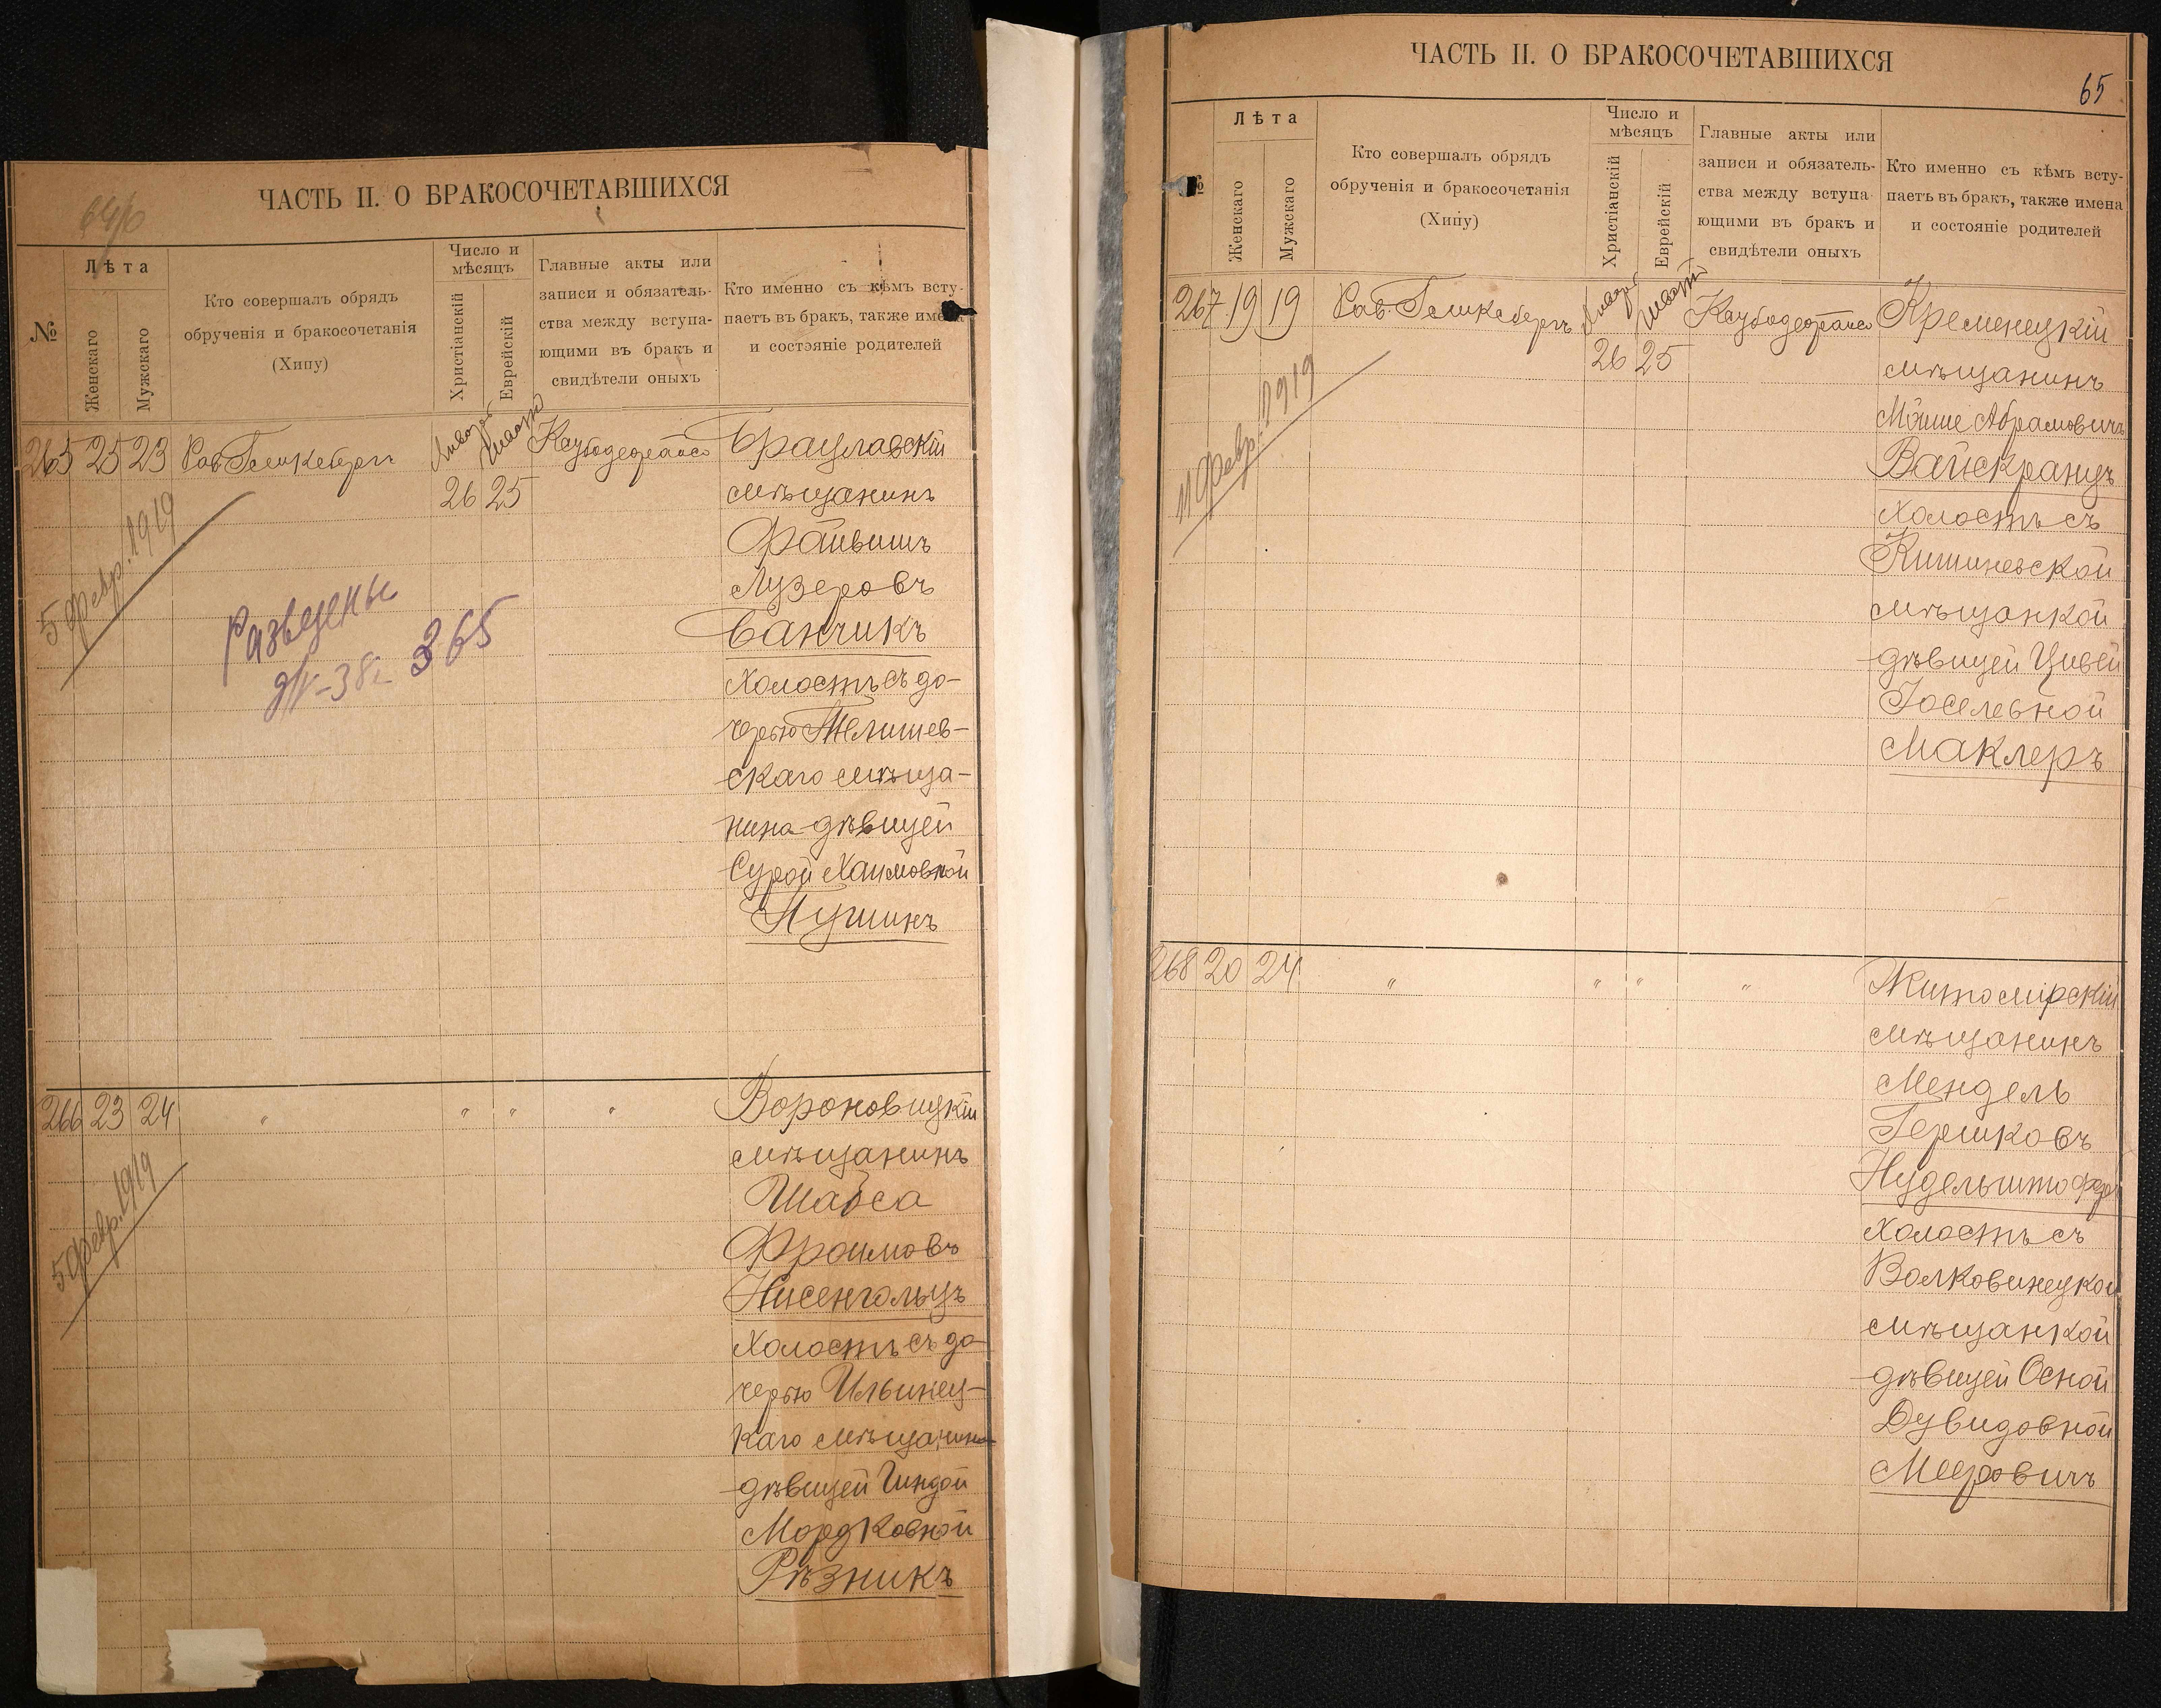 64об
ЧАСТЬ II. О БРАКОСОЧЕТАВШИХСЯ
№
Лѣта
Женскаго
Мужскаго
Кто совершалъ обрядъ
обрученія и бракосочетанія
(Хипу)
Число и
мѣсяцъ
Христіанскій
Еврейскій
Главные акты или
записи и обязатель-
ства между вступа-
ющими въ бракъ и
свидѣтели оныхъ
Кто именно съ кѣмъ всту-
паетъ въ бракъ, также имена
и состояніе родителей
265 25 23 Рав. Января Шват Брацлавскій
26 25 мѣщанинъ
5 февр. 1919
Файвишъ
Лузеровъ
Разведены
365
Банчикъ
холостъ съ до-
черью Тывшев-
скаго мѣща-
нина дѣвицей
Сурой Хаимовной
266 23 24 " " " " Вороновицкій
мѣщанинъ
5 февр. 1919
Шабса
Фроимовъ
Нисенгольцъ
холостъ съ до-
черью Ильинец-
каго мѣщанина
дѣвицей Гиндой
Мордковной
Рѣзникъ
65
ЧАСТЬ II. О БРАКОСОЧЕТАВШИХСЯ
№
Лѣта
Женскаго
Мужскаго
Кто совершалъ обрядъ
обрученія и бракосочетанія
(Хипу)
Число и
мѣсяцъ
Христіанскій
Еврейскій
Главные акты или
записи и обязатель-
ства между вступа-
ющими въ бракъ и
свидѣтели оныхъ
Кто именно съ кѣмъ всту-
паетъ въ бракъ, также имена
и состояніе родителей
267 19 19 Рав. Января Шват Кременецкій
26 25 мѣщанинъ
11 февр. 1919
Мойше Абрамовичъ
Вайскранцъ
холостъ съ
Кишиневской
мѣщанкой
дѣвицей Цивей
Іоселевной
Маклеръ
268 20 24 " " " " Житомірскій
мѣщанинъ
Мендель
Гершковъ
холостъ съ
Волковинецкой
мѣщанкой
дѣвицей Осной
Дувидовной
Мееровичъ